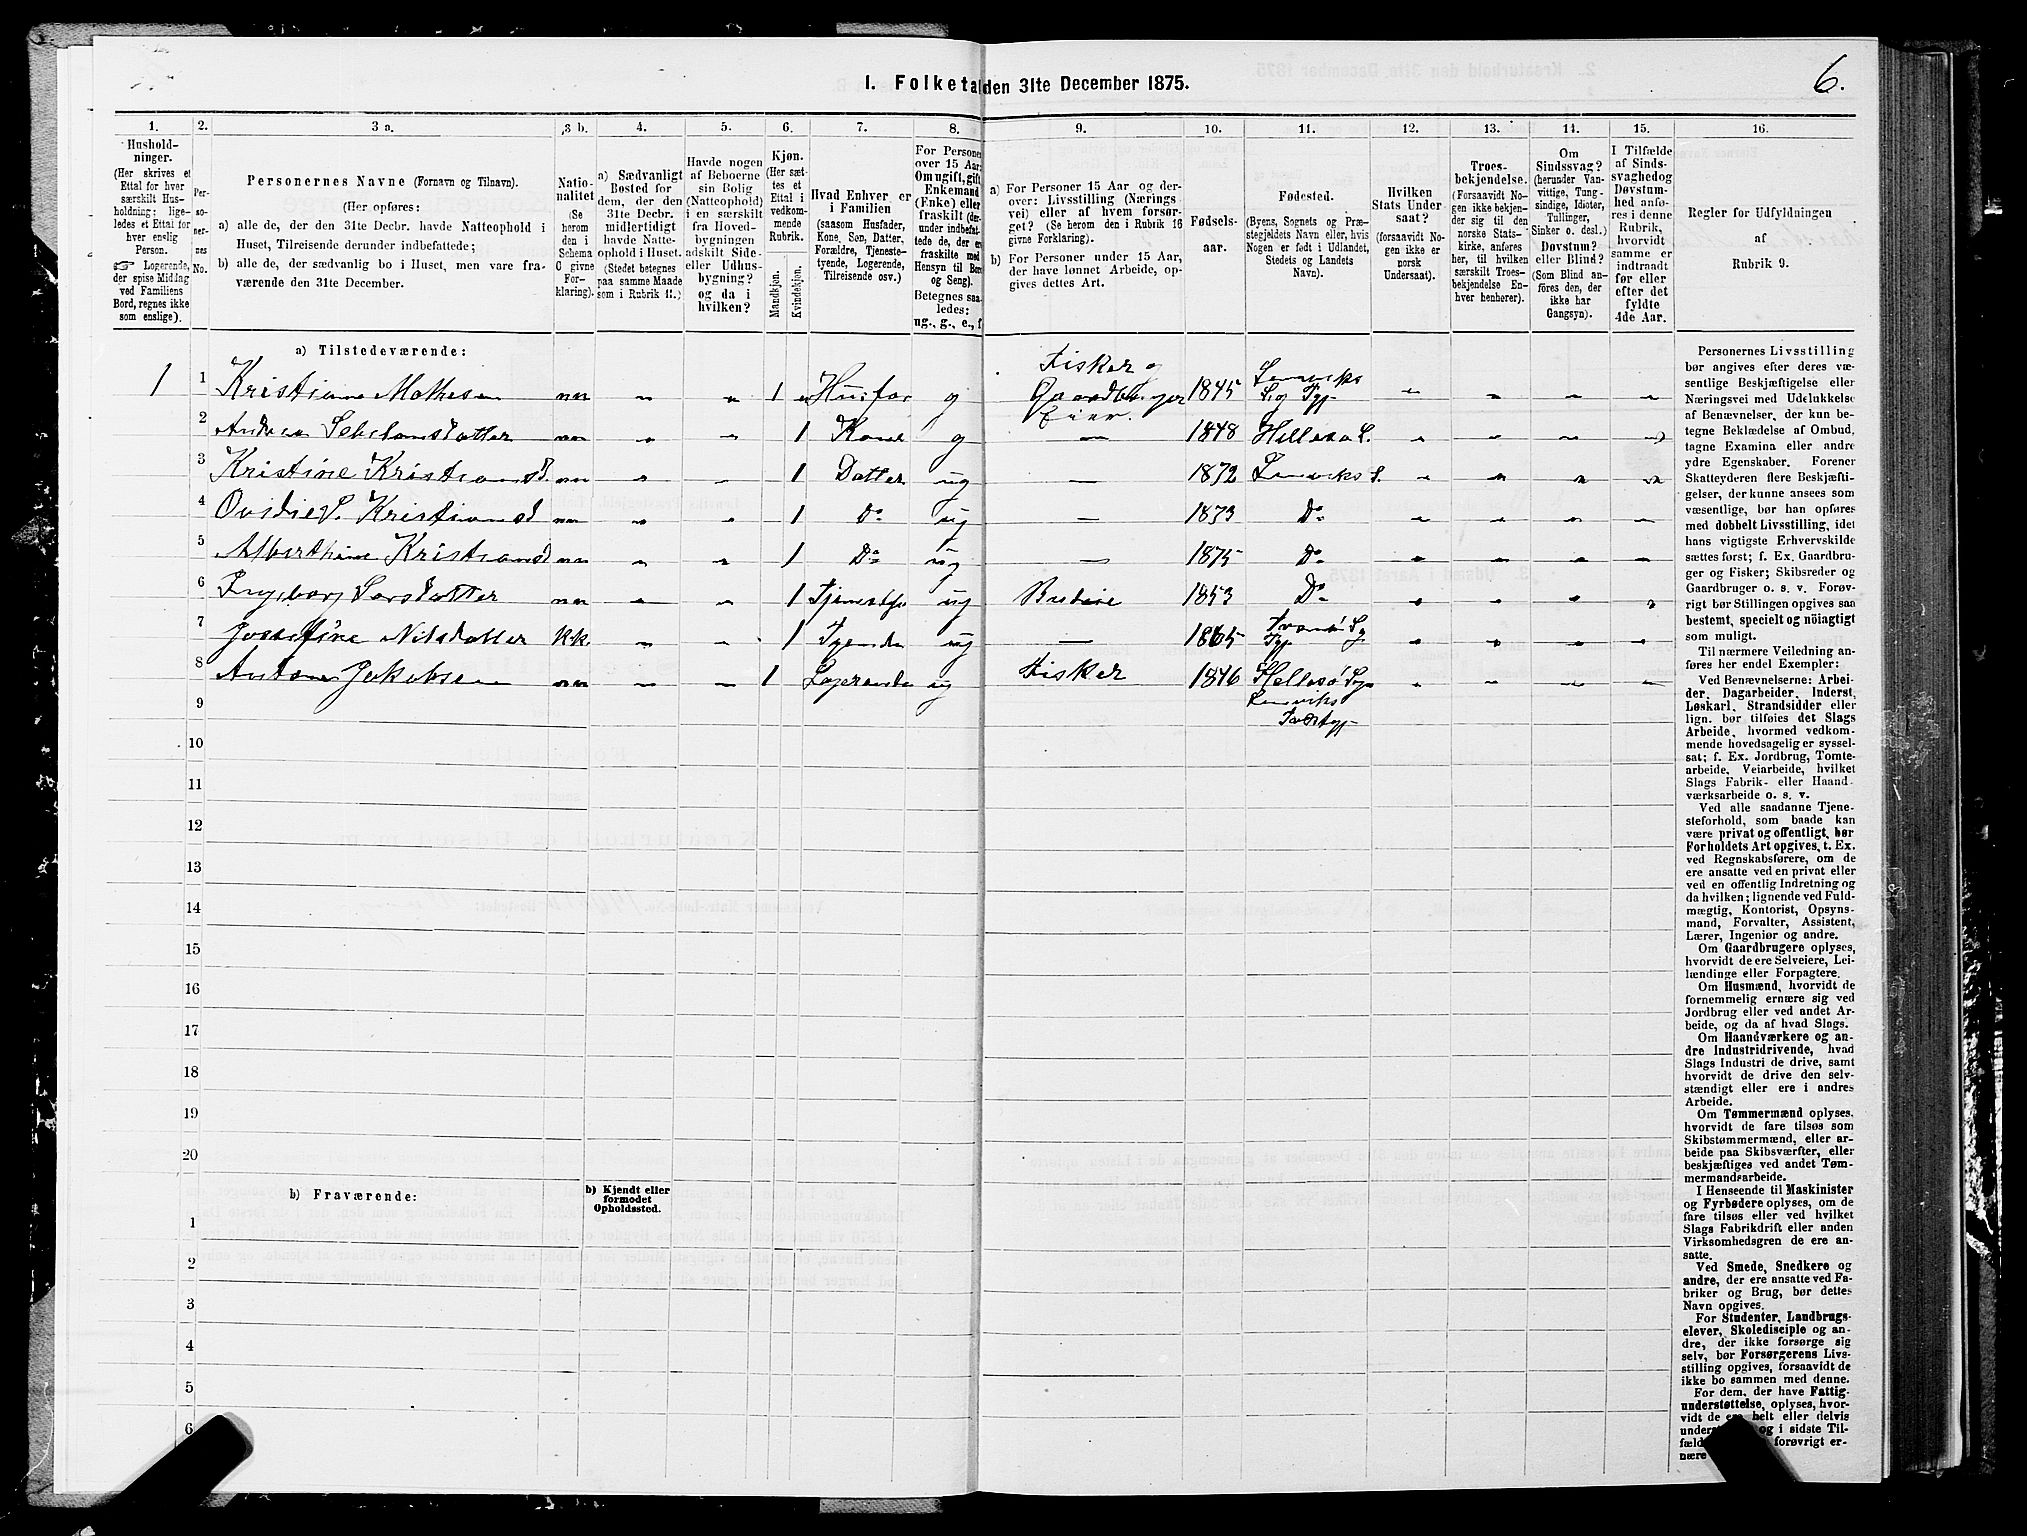 I. Folketal den 31te December 1875.
6.
1. 2. 3 a. 3 b. 4. 5. 6. 7. 8. 9. 10. 11. 12. 13. 14. 15. 16.
Hushold-
ninger.
(Her skrives et
Ettal for hver
særskilt Hus-
holdning; lige-
ledes et Ettal for
hver enslig
Person.
☞ Logerende,
der spise Middag
ved Familiens
Bord, regnes ikke
som enslige).
Per-
so-
ner-
nes
No.
Personernes Navne (Fornavn og Tilnavn).
(Her opføres:
a) alle de, der den 31te Decbr. havde Natteophold i
Huset, Tilreisende derunder indbefattede;
b) alle de, der sædvanlig bo i Huset, men vare fra-
værende den 31te December.
Natio-
nalitet
(Se
herom
den i
Schema
C givne
For-
klaring).
a) Sædvanligt
Bosted for
dem, der den
31te Decbr.
midlertidigt
havde Natte-
ophold i Huset.
(Stedet betegnes
paa samme Maade
som i Rubrik 11.)
Havde nogen
af Beboerne
sin Bolig
(Natteophold)
i en særskilt
fra Hoved-
bygningen
adskilt Side-
eller Udhus-
bygning?
og da i
hvilken?
Kjøn.
(Her sæt-
tes et
Ettal i
vedkom-
mende
Rubrik.
Mandkjøn.
Kvindekjøn.
Hvad Enhver er
i Familien
(saasom Husfader,
Kone, Søn, Datter,
Forældre, Tjeneste-
tyende, Logerende,
Tilreisende osv.)
For Personer
over 15 Aar:
Om ugift, gift,
Enkemand
(Enke) eller
fraskilt (der-
under indbefat-
tede de, der ere
fraskilte med
Hensyn til Bord
og Seng).
Betegnes saa-
ledes:
ug., g., e., f
a) For Personer 15 Aar og der-
over: Livsstilling (Nærings
vei) eller af hvem forsør-
get? (Se herom den i Rubrik 16
givne Forklaring).
b) For Personer under 15 Aar,
der have lønnet Arbeide, op-
gives dettes Art.
Fødsels-
aar.
Fødested.
(Byens, Sognets og Præ-
stegjeldets Navn eller, hvis
Nogen er født i Udlandet,
Stedets og Landets
Navn).
Hvilken
Stats Under
saat?
(forsaavidt No-
gen ikke er
norsk
Undersaat).
Troes-
bekjendelse.
(Forsaavidt No-
gen ikke bekjen-
der sig til den
norske Stats-
kirke, anføres
her, til hvilken
særskilt Troes-
bekjendelse En-
hver henhører).
Om
Sindssvag?
(herunder Van-
vittige, Tung-
sindige, Idioter,
Tullinger,
Sinker o. desl.)
Døvstum?
eller Blind?
(Som Blind an-
føres den, der
ikke har
Gangsyn).
I Tilfælde
af Sinds-
svaghed og
Døvstum-
hed anfø-
res i denne
Rubrik,
hvorvidt
samme er
indtraadt
før eller
efter det
fyldte
4de Aar.
Regler for Udfyldningen
af
Rubrik 9.
a) Tilstedeværende:
1 1 Kristian Mathesen nn „ „ 1 Husfar g Fisker og Gaardbruger Eier. 1845
2 nn „ „ 1 Kone g — 1848 Hillesø S.
3 Kristine Kristiansd. nn „ „ 1 Datter ug — 1872 Lenviks S.
4 Kristiansd nn „ „ 1 Do ug — 1873 Do
5 Kristiansd nn „ „ 1 Do ug — 1875 Do
6 Ingeborg Larsdatter nn „ „ 1 ug Budeie 1853 Do
7 Josefine Nilsdatter kk „ „ 1 Tyende ug — 1865
8 Anton Jakobsen nn „ „ 1 Logerende ug Fisker 1846 Hellesø
Lenviks
9
10
11
12
13
14
15
16
17
18
19
20
b) Fraværende:
b) Kjendt eller
formodet
Opholdssted.
1
2
3
4
5
6
Personernes Livsstilling
bør angives efter deres væ-
sentlige Beskjæftigelse eller
Næringsvei med Udelukkelse
af Benævnelser, der kun be-
tegne Beklædelse af Ombud,
tagne Examina eller andre
ydre Egenskaber. Forener
Skatteyderen flere Beskjæfti-
gelser, der kunne ansees som
væsentlige, bør han opføres
med dobbelt Livsstilling, idet
hans vigtigste Erhvervskilde
sættes først; f. Ex. Gaardbru-
ger og Fisker; Skibsreder og
Gaardbruger o. s. v. Forøv-
rigt bør Stillingen opgives saa
bestemt, specielt og nöiagtigt
som muligt.
Til nærmere Veiledning an-
føres her endel Exempler:
Ved Benævnelserne: Arbei-
der, Dagarbeider, Inderst,
Løskarl, Strandsidder eller
lign. bør tilføies det Slags
Arbeide, hvormed vedkom-
mende hovedsagelig er syssel-
sat; f. Ex. Jordbrug, Tomte-
arbeide, Veiarbeide, hvilket
Slags Fabrik- eller Haand-
værksarbeide o. s. v.
Ved alle saadanne Tjene-
steforhold, som baade kan
være privat og offentligt, bør
Forholdets Art opgives, t. Ex.
ved Regnskabsførere, om de
ere ansatte ved en privat eller
ved en offentlig Indretning og
da hvilken; lignende ved Fuld-
mægtig, Kontorist, Opsyns-
mand, Forvalter, Assistent,
Lærer, Ingeniør og andre.
Om Gaardbrugere oplyses,
hvorvidt de ere Selveiere, Lei-
lændinge eller Forpagtere.
Om Husmænd, hvorvidt de
fornemmelig ernære sig ved
Jordbrug eller ved andet Ar-
beide, og da af hvad Slags.
Om Haandværkere og an-
dre Industridrivende, hvad
Slags Industri de drive, samt
hvorvidt de drive den selv-
stændigt eller ere i andres
Arbeide.
Om Tømmermænd oplyses,
hvorvidt de fare tilsøs som
Skibstømmermænd, eller ar-
beide paa Skibsværfter, eller
beskjæftiges ved andet Tøm-
mermandsarbeide.
I Henseende til Maskinister
og Fyrbødere oplyses, om de
fare tilsøs eller ved hvilket
Slags Fabrikdrift eller anden
Virksomhedsgren de ere an-
satte.
Ved Smede, Snedkere og
andre, der ere ansatte ved Fa-
briker og Brug, bør dettes
Navn opgives.
For Studenter, Landbrugs-
elever, Skoledisciple og an-
dre, der ikke forsørge sig
selv, bør Forsørgerens Livs-
stilling opgives, forsaavidt de
ikke bo sammen med denne.
For dem, der have Fattig-
understøttelse, oplyses, hvor-
vidt de ere helt eller delvis
og i sidste Til-
forøvrigt er-
nære